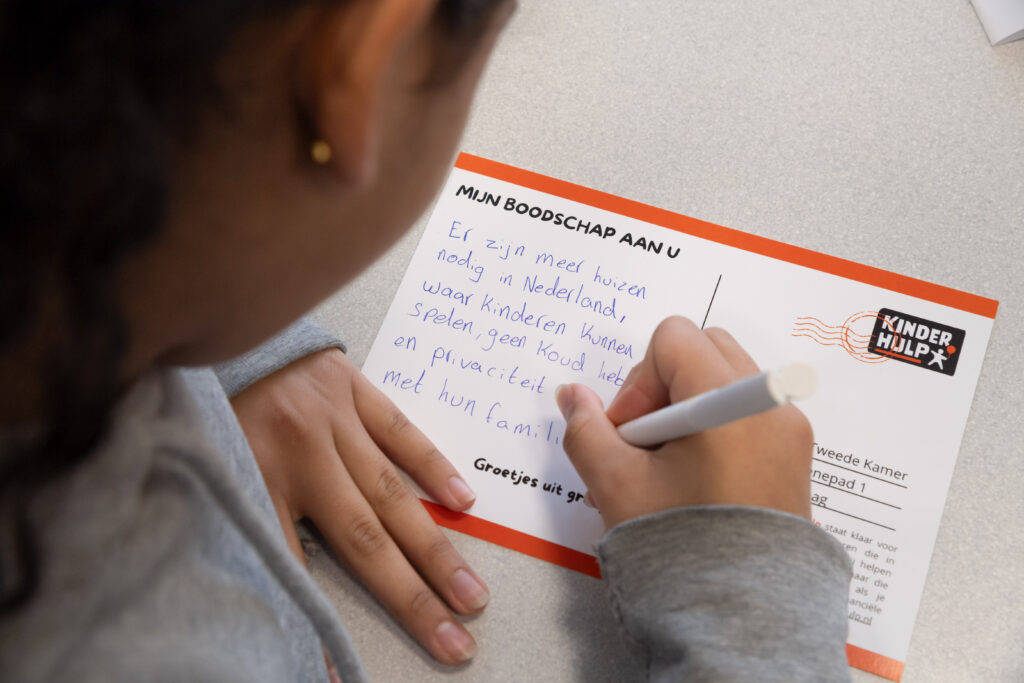 MIJN BOODSCHAP AAN U
Er zijn meer huizen
nodig in Nederland,
waar kinderen kunnen
spelen, geen koud heb
en privaciteit
met hun famili
Groetjes uit gr
KINDER
HULP
Tweede Kamer
nepad 1
ag
staat klaar voor
die in
helpen
aar die
als je
anciële
lp.nl